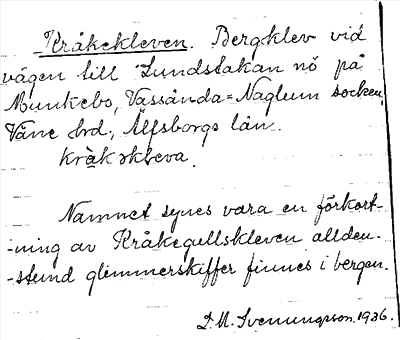 Kråkekleven. Bergklev vid
vägen till Lundstakan nö på
Munkebo, Vassända-Naglum socken,
Väne hrd., Älfsborgs län.
kràkəkleva.
Namnet synes vara en förkort-
-ning av Kråkegullskleven allden-
-stund glimmerskiffer finnes i bergen.
D. M. Svenungsson. 1936.